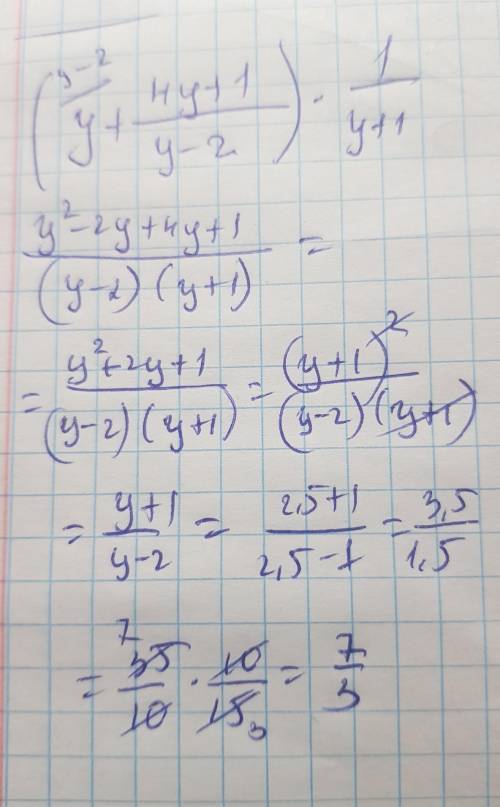 (y-2/ y + (4y+1)/(y-2)) · 1/(y+1)
(y²-2y+4y+1)/((y-2)(y+1)) =
= (y²+2y+1)/((y-2)(y+1)) = (y+1)²/((y-2)(y+1))
= (y+1)/(y-2) = (2,5+1)/(2,5-1) = 3,5/1,5
= 7 35/10 · 10/15 3 = 7/3